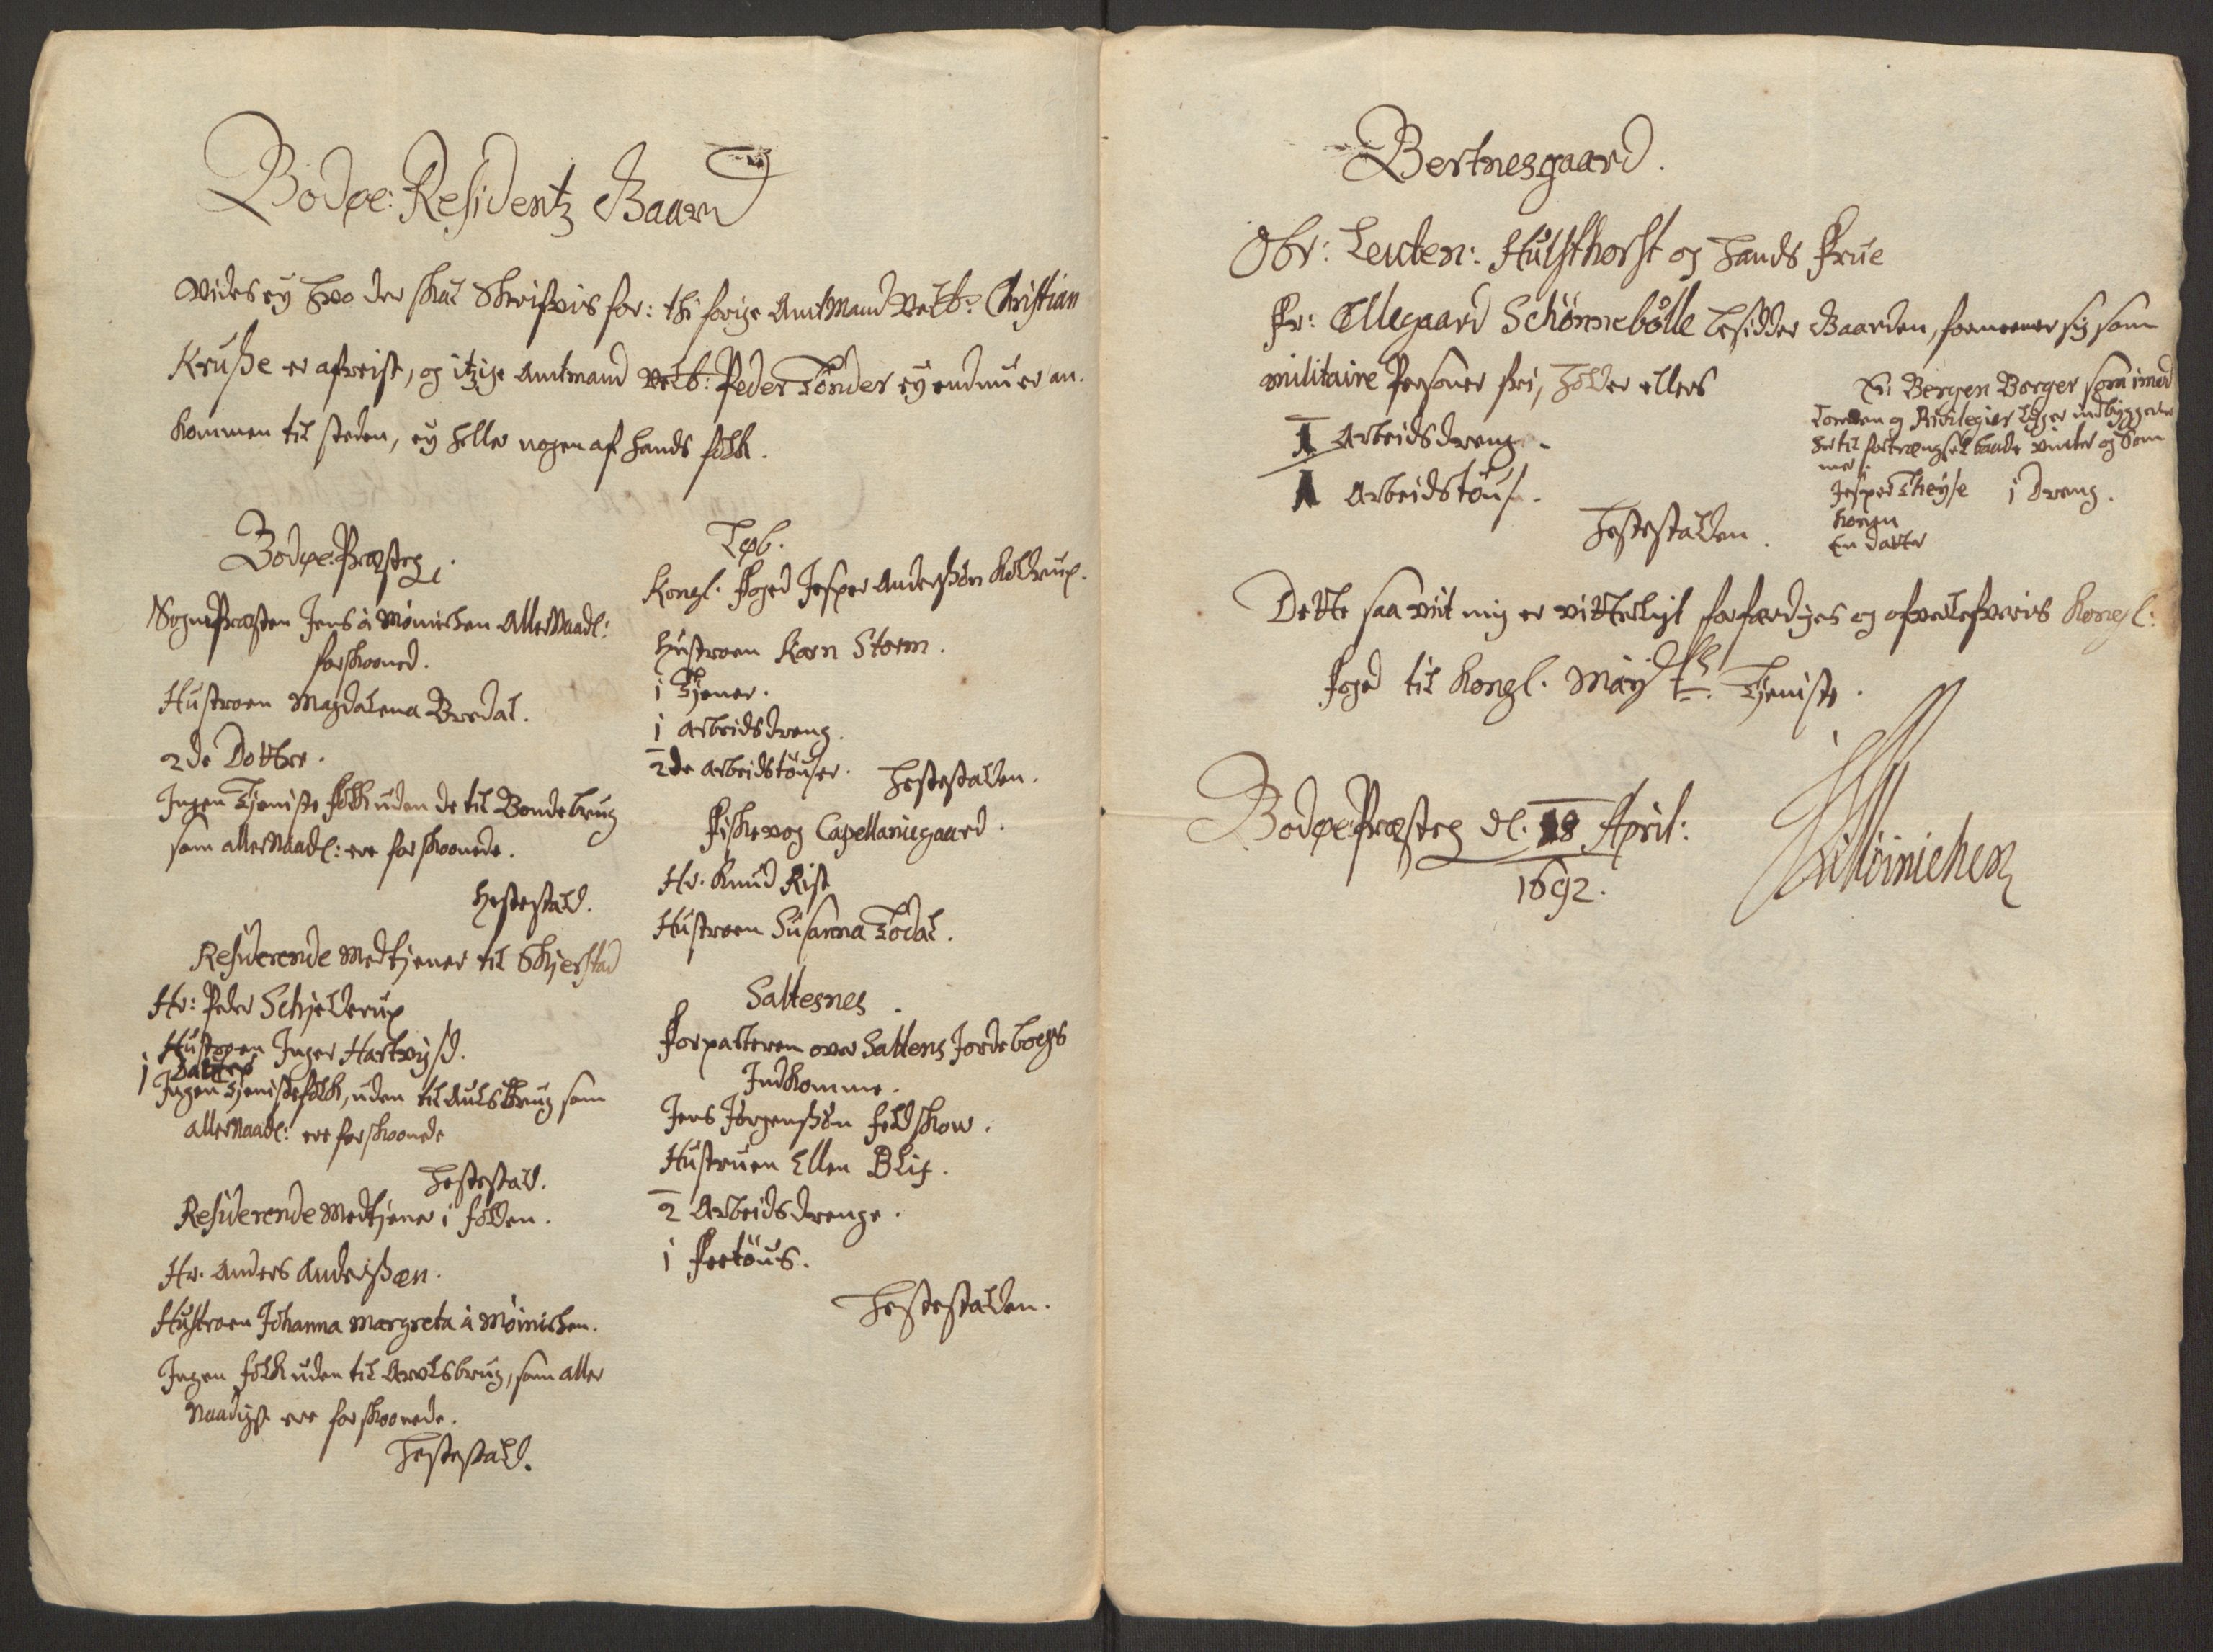 Bodøe: Residentz Gaard
Vides ey hvo der skal Skrifvis for: thi forige Amtmand Velb: Christian
Kruße er afreist, og itzige Amtmand Velb: Peder Tönder ey endnu er an-
kommen til steden, ey heller nogen af hands folk.
Bodøe: Præsteg.
SognePræsten Jens à Mönichen AllerNaadl:
forskooned.
Hustroen Magdalena Bredal.
2de Dottre.
Ingen Tjeniste folk uden de til Bondebrug
som allerNaadl: ere forskoonede.
Hestestald.
Residerende Medtjener til Skjerstad
Hr: Peder Schjelderup
Hustroen Inger Hartvigsd.
1 Datter
Ingen Tjenistefolk, uden til Aulsbrug som
allerNaadl: ere forskoonede
Hestestald.
Residerende Medtjener i folden.
Hr. Anders Anderßøn.
Hustroen Johanna Margreta à Möinichen.
Ingen folk uden til Avelsbrug, som aller
Naadigst ere forskoonede.
Hestestald.
Løb.
Kongl. Foged Jesper Anderßön Koldrup.
Hustroen Karn Storm.
1 Tjener.
1 Arbeidsdreng.
2de Arbeidstöuser. Hestestalden.
Fiskevog Capellaniegaard.
Hr. Knud Rist
Hustroen Susanna Todal.
Saltesnes.
Forpacteren over Saltens Jordebogs
Indkomme.
Jens Jörgenßön feldskow.
Hustruen Ellen Blix.
2 Arbeidsdrenge.
1 Feetöus.
Hestestalden.
Bertnesgaard.
Obr: Leuten: Hulsthorst og Hands Frue
Fr: Ellegaard Schönnebölle besidder Gaarden, formeener sig som
militaire Personer fri, Holder ellers
1 Arbeidsdreng.
1 Arbeidstöus.
Hestestalden.
En Bergen Borger som imod
Loven og Privilegier ligger indbyggerne
her til fortrængsel baade vinter og Som
mer.
Jesper Theyse 1 Dreng.
konen
En datter
Dette saa viit mig er vitterligt forfærdiges og ofverlefvris Kongl:
Foged til Kongl. May.ts Tjeniste.
Bodøe Præsteg dl. 18 April:
1692.
Möinichen